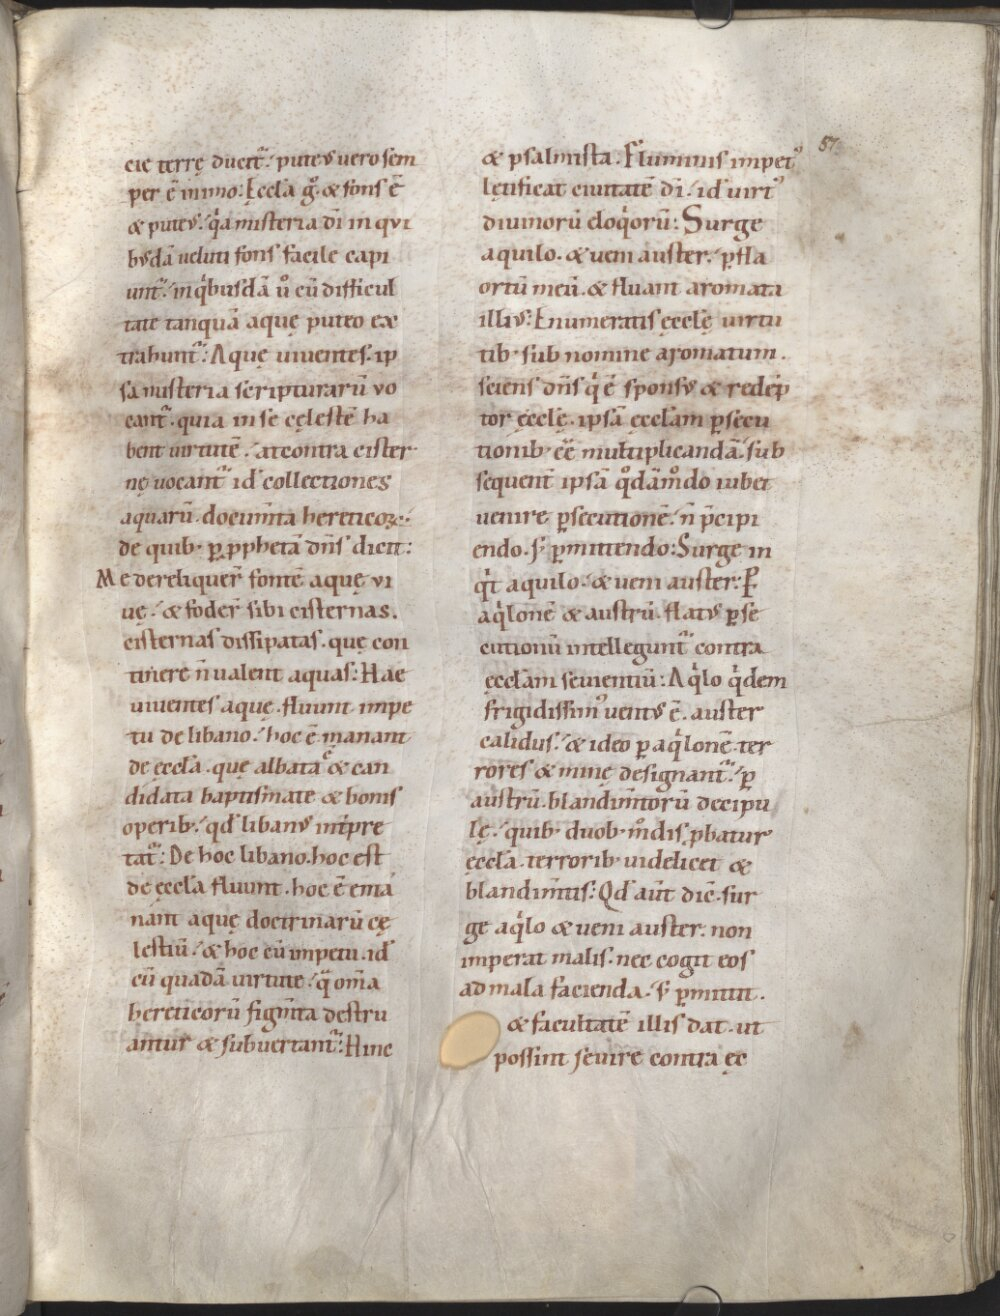 57
cie terrę ducit᷑. puteꝰ uero sem
per ē in imo. Eccl̄a gͦ. & fons ē
& puteꝰ. qͥa misteria dī in qui
busdā ueluti fons facile capi
unt᷑. in qͥbusdā ů cū difficul
tate tanquā aquę puteo ex
trahunt᷑. Aquę uiuentes. ip
sa misteria scripturarū uo
cant᷑. quia in se cęlestē ha
bent uirtutē. at contra cister
nę uocant᷑ id collectiones
aquarū. docum̄ta hereticoꝝ.
de quib. ꝑ ꝓphetā dn̄s dicit:
Me dereliquer̄ fontē aquę vi
uę. & foder̄ sibi cisternas.
cisternas dissipatas. quę con
tinere n̄ ualent aquas. Hae
uiuentes aque. fluunt impe
tu de libano. hoc ē manant
de ęccl̄a. quę albata ē & can
didata baptismate & bonis
operib. qd̄ libanꝰ int̄pre
tat᷑. De hoc libano. hoc est
de ęccl̄a fluunt. hoc ē ema
nant aquę doctrinarū cę
lestiū. & hoc cū impetu. id
cū quadā uirtute. qͣ om̄a
hereticorū figm̄ta destru
antur & subuertant᷑. Hinc
& psalmista. Fluminis impetꝰ
lętificat ciuitatē dī. id uirtꝰ
diuinorū eloqͥorū. Surge
aquilo. & ueni auster. ꝑfla
ortū meū. & fluant aromata
illiꝰ. Enumeratis ęccłę uirtu
tib. sub nomine aromatum.
sciens dn̄s qͥ ē sponsꝰ & redēp
tor ęccłę. ipsā ęccl̄am ꝑsecu
tionib. ēē multiplicandā. sub
sequent̄ ipsā qͦdāmͦdo iubet
uenire ꝑsecutionē. n̄ p̄cipi
endo. sꝫ ꝑmittendo. Surge in
qͥt aquilo. & ueni auster. Ꝑ
aqͥlonē & austrū. flatꝰ ꝑse
cutionū intellegunt᷑ contra
ęccl̄am seuientiū. Aqͥlo qͥdem
frigidissimꝰ uentꝰ ē. auster
calidus. & ideo ꝑ aqͥlonē. ter
rores & minę designant᷑. ꝑ
austrū. blandim̄torū decipu
lę. quib. duob. m̄dis ꝓbatur
ęccl̄a. terrorib. uidelicet &
blandim̄tis. Qd̄ aut̄ dic̄. sur
ge aqͥlo & ueni auster. non
imperat malis. nec cogit eos
ad mala facienda. sꝫ ꝑmittit.
& facultatē illis dat. ut
possint sęuire contra ęc